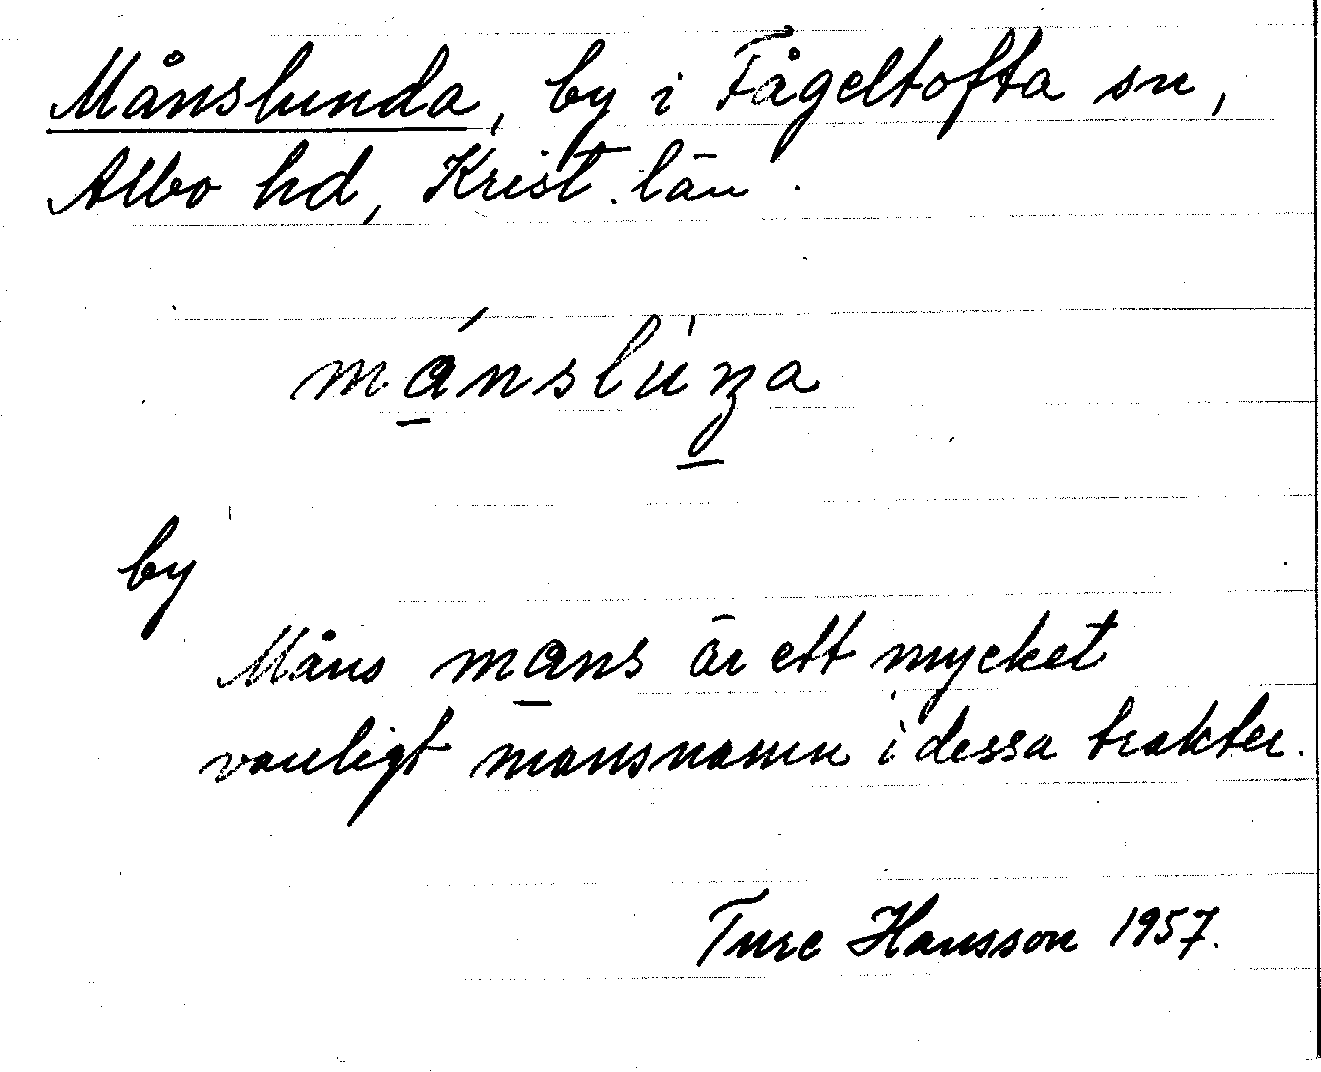 Månslunda, by i Fågeltofta sn,
Albo hd, Krist. län.
mánslùṉa
by
Måns mans är ett mycket
vanligt mansnamn i dessa trakter.
Ture Hansson 1957.